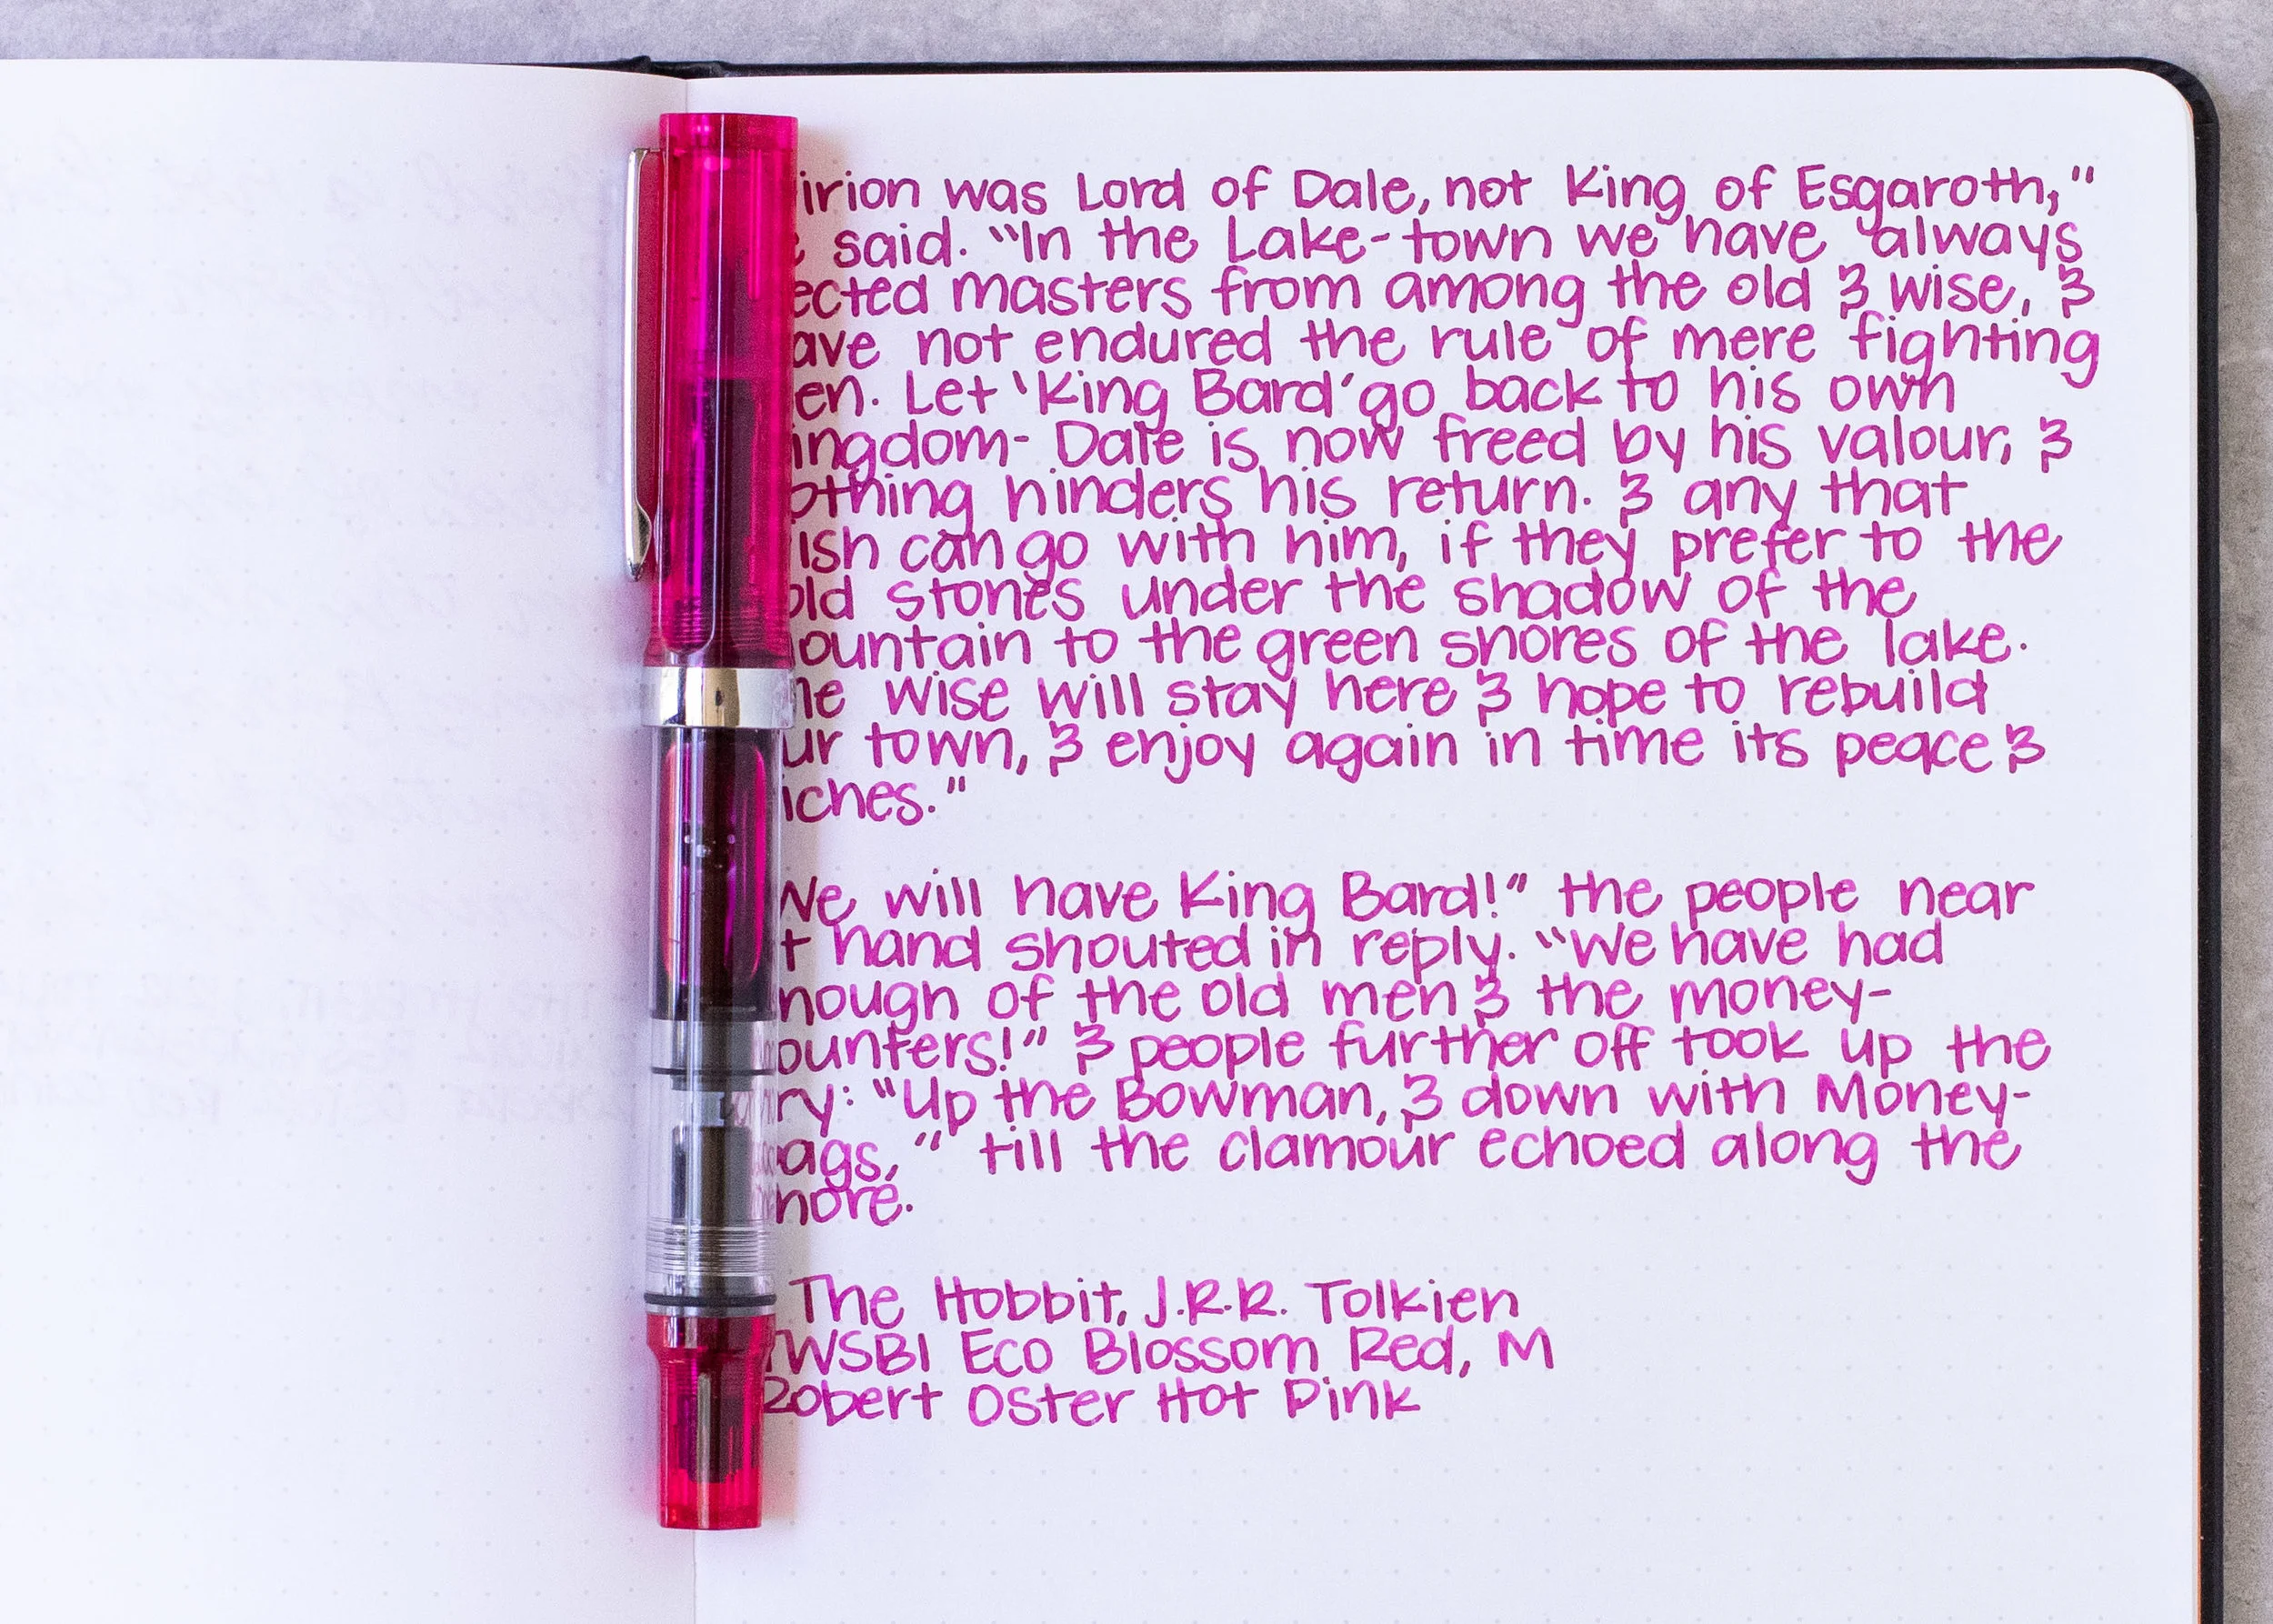 irion was Lord of Dale, not King of Esgaroth,"
e said. "In the Lake-town we have always
ected masters from among the old & wise, &
ave not endured the rule of mere fighting
en. Let 'King Bard' go back to his own
ingdom- Dale is now freed by his valour, &
othing hinders his return. & any that
ish can go with him, if they prefer to the
old stones under the shadow of the
ountain to the green shores of the lake.
he wise will stay here & hope to rebuild
ur town, & enjoy again in time its peace &
iches."
We will have King Bard!" the people near
t hand shouted in reply. "We have had
nough of the old men & the money-
ounters!" & people further off took up the
ry: "Up the Bowman, & down with Money-
bags," till the clamour echoed along the
hore.
The Hobbit, J.R.R. Tolkien
TWSBI Eco Blossom Red, M
Robert Oster Hot Pink